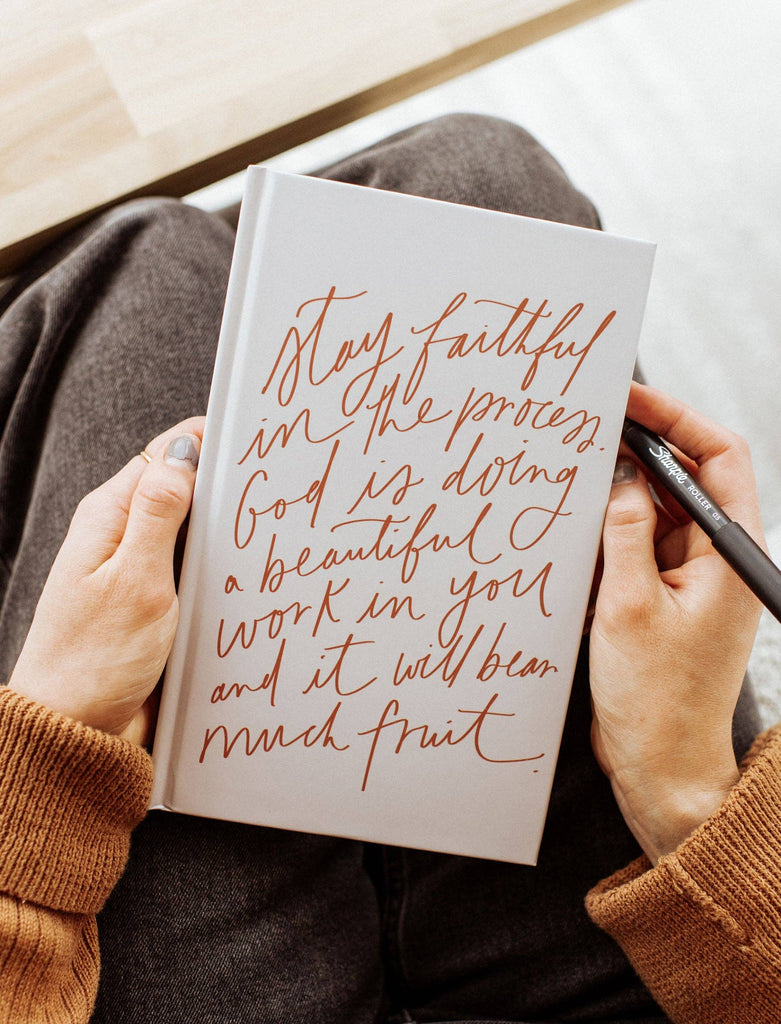 Stay faithful
in the process.
God is doing
a beautiful
work in you
and it will bear
much fruit.
Sharpie ROLLER 0.5